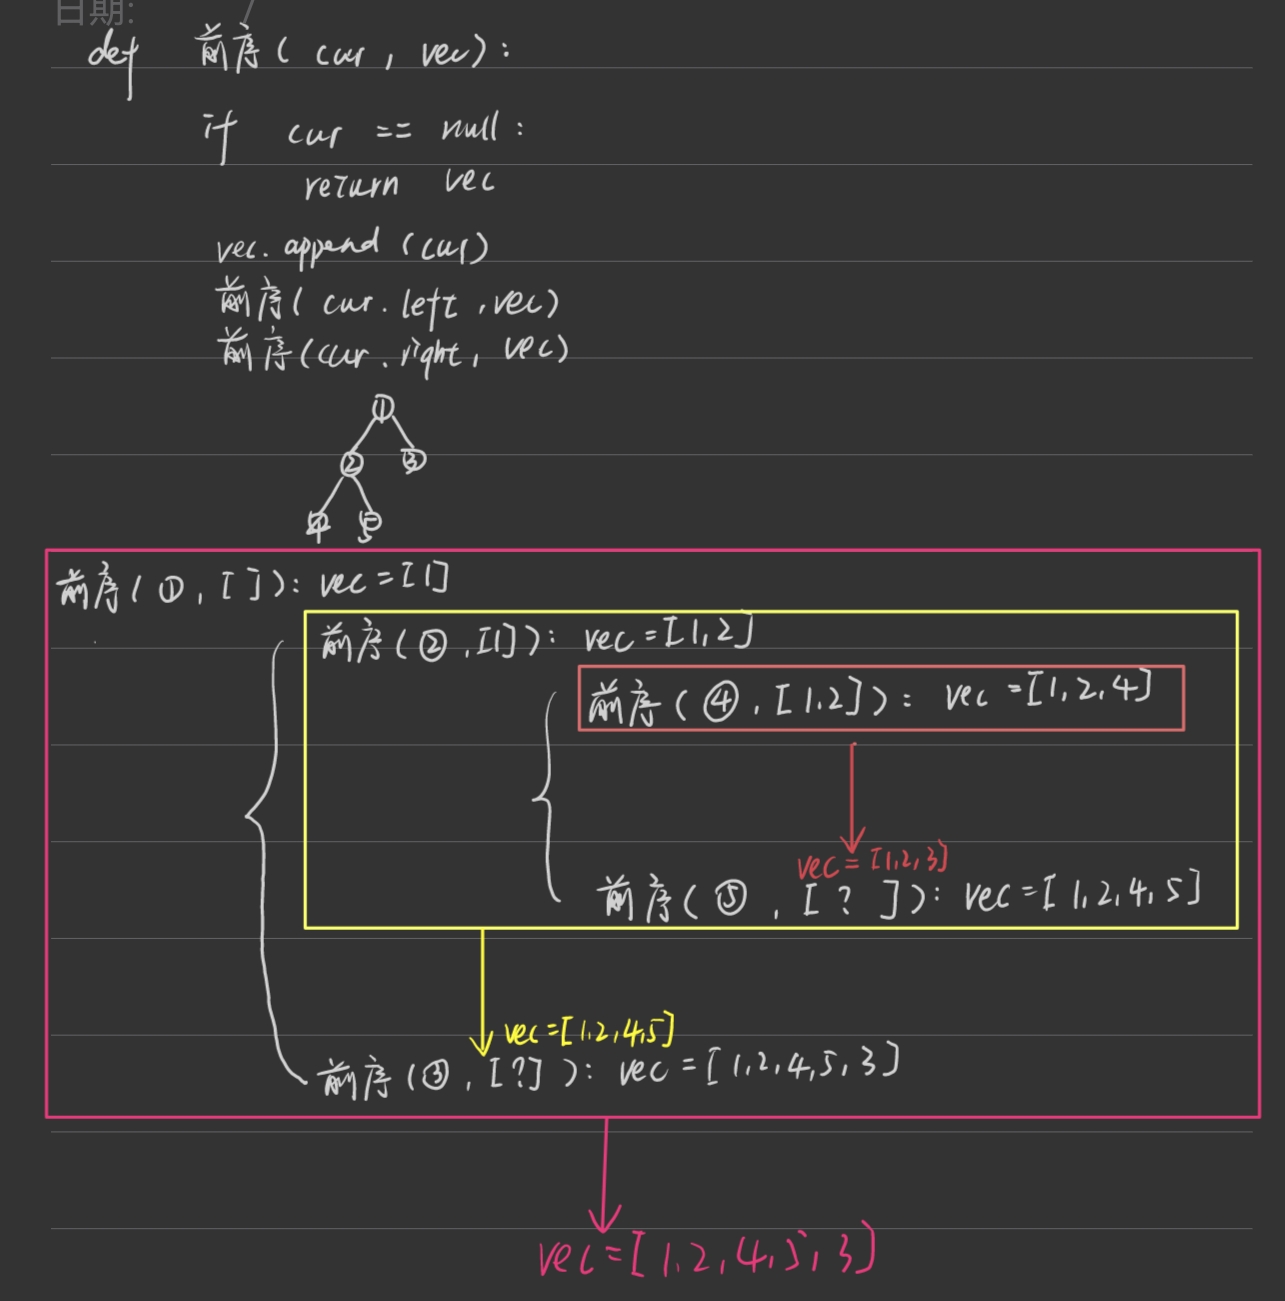 日期: /
def 前序( cur , vec ):
if cur == null :
return vec
vec. append (cur)
前序( cur. left , vec)
前序(cur. right, vec)
①
② ③
④ ⑤
前序( ① , [ ] ): vec = [1]
前序( ② , [1] ): vec = [1, 2]
前序( ④ , [ 1,2] ): vec = [1, 2, 4]
vec = [1,2,3]
前序( ⑤ , [ ? ] ): vec = [ 1, 2, 4, 5]
vec=[1,2,4,5]
前序( ③ , [?] ): vec = [ 1,2,4,5, 3]
vec=[ 1,2, 4, 5, 3]